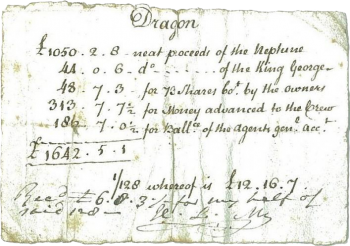 Dragon
£1050.2.8 neat proceeds of the Neptune
44.0.6 do ....... of the King George
48.7.3 for 73 Shares bot. by the owners
313.7.7½ for Money advanced to the Crew
186.7.0½ for Ball.ce of the agents gen.l acc.t
£1642.5.1
1/128 whereof is £12.16.7
Rec.d £6.8.3½ for my half of
said 128